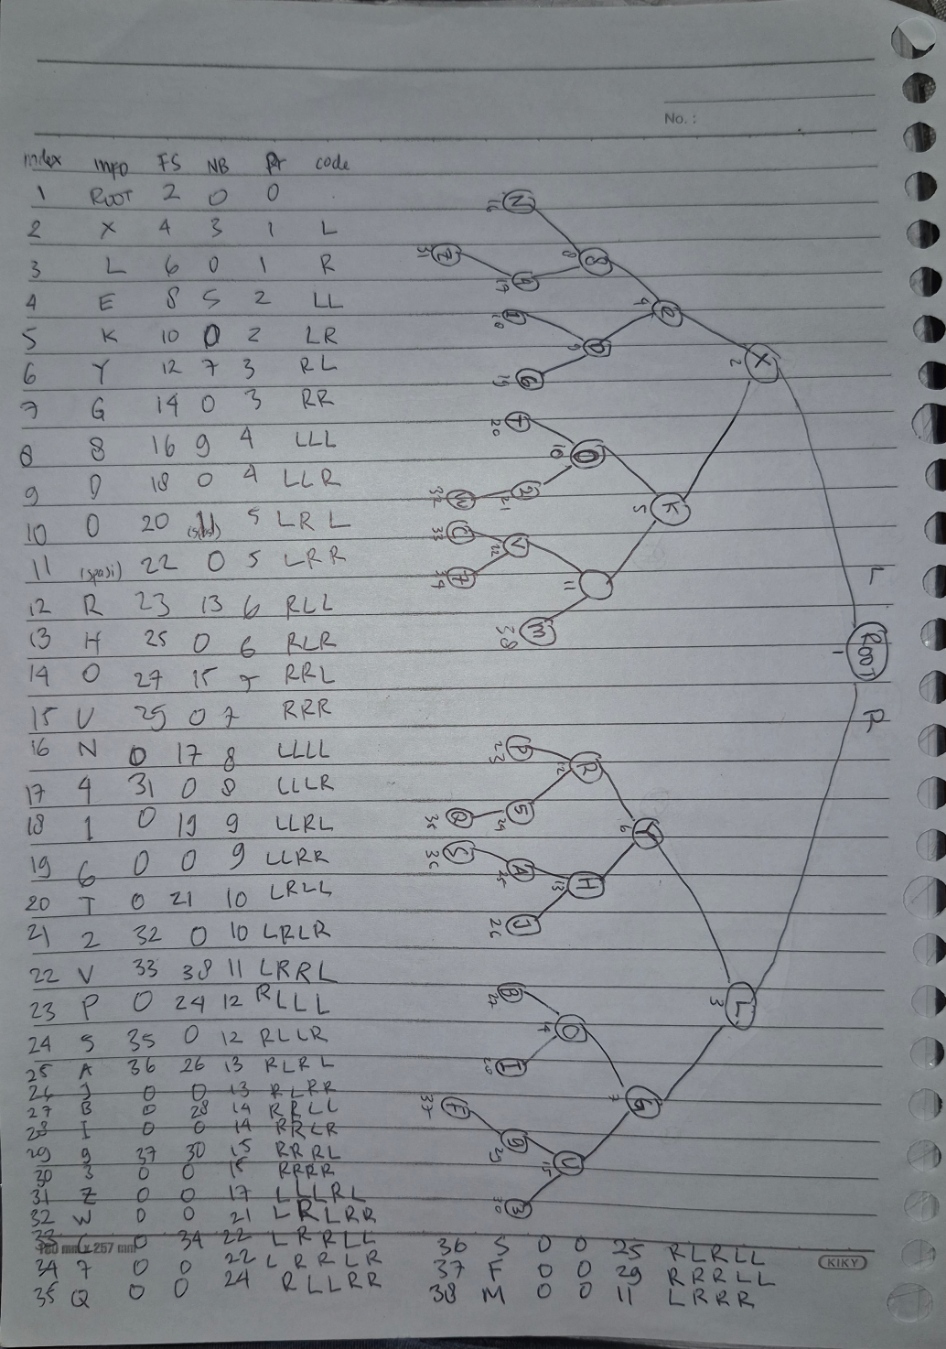 No. :
Index INFO FS NB Pr code
1 ROOT 2 0 0
2 X 4 3 1 L
3 L 6 0 1 R
4 E 8 5 2 LL
5 K 10 0 2 LR
6 Y 12 7 3 RL
7 G 14 0 3 RR
8 8 16 9 4 LLL
9 D 18 0 4 LLR
10 O 20 5 LRL
11 (spasi) 22 0 5 LRR
12 R 23 13 6 RLL
13 H 25 0 6 RLR
14 O 27 15 7 RRL
15 U 29 0 7 RRR
16 N 0 17 8 LLLL
17 4 31 0 8 LLLR
18 1 0 19 9 LLRL
19 6 0 0 9 LLRR
20 T 0 21 10 LRLL
21 2 32 0 10 LRLR
22 V 33 38 11 LRRL
23 P 0 24 12 RLLL
24 S 35 0 12 RLLR
25 A 36 26 13 RLRL
26 J 0 0 13 RLRR
27 B 0 28 14 RRLL
28 I 0 0 14 RRLR
29 9 37 30 15 RRRL
30 3 0 0 15 RRRR
31 Z 0 0 17 LLLRL
32 W 0 0 21 LRLRR
33 C 0 34 22 LRRLL
34 7 0 0 22 LRRLR
35 Q 0 0 24 RLLRR
36 S 0 0 25 RLRLL
37 F 0 0 29 RRRLL
38 M 0 0 11 LRRR
x 257 mm
KIKY
Root 1
L
R
X 2
L 3
e 4
K 5
Y 6
G 7
8 8
D 9
O 10
11
R 12
H 13
O
U 15
N 16
Z 31
6 19
T 20
2 21
W 32
C 33
V 22
7 34
M 38
P 23
S 24
Q 35
A 25
J 26
B
I
F 37
9 29
3 30